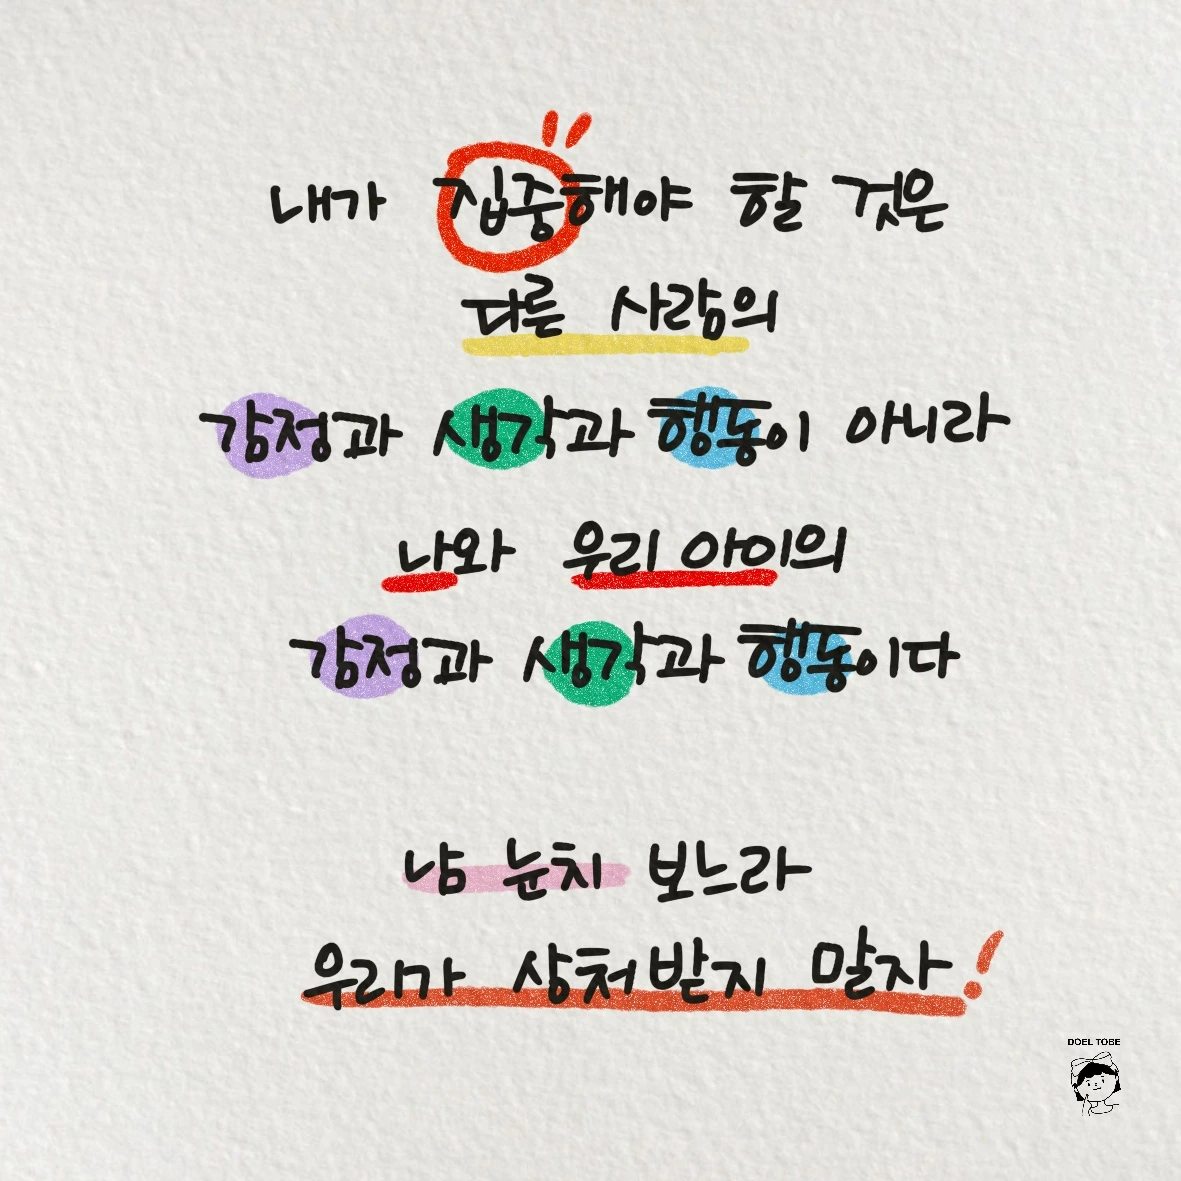 내가 집중해야 할 것은
다른 사람의
감정과 생각과 행동이 아니라
나와 우리 아이의
감정과 생각과 행동이다
남 눈치 보느라
우리가 상처받지 말자!
DOEL TOBE